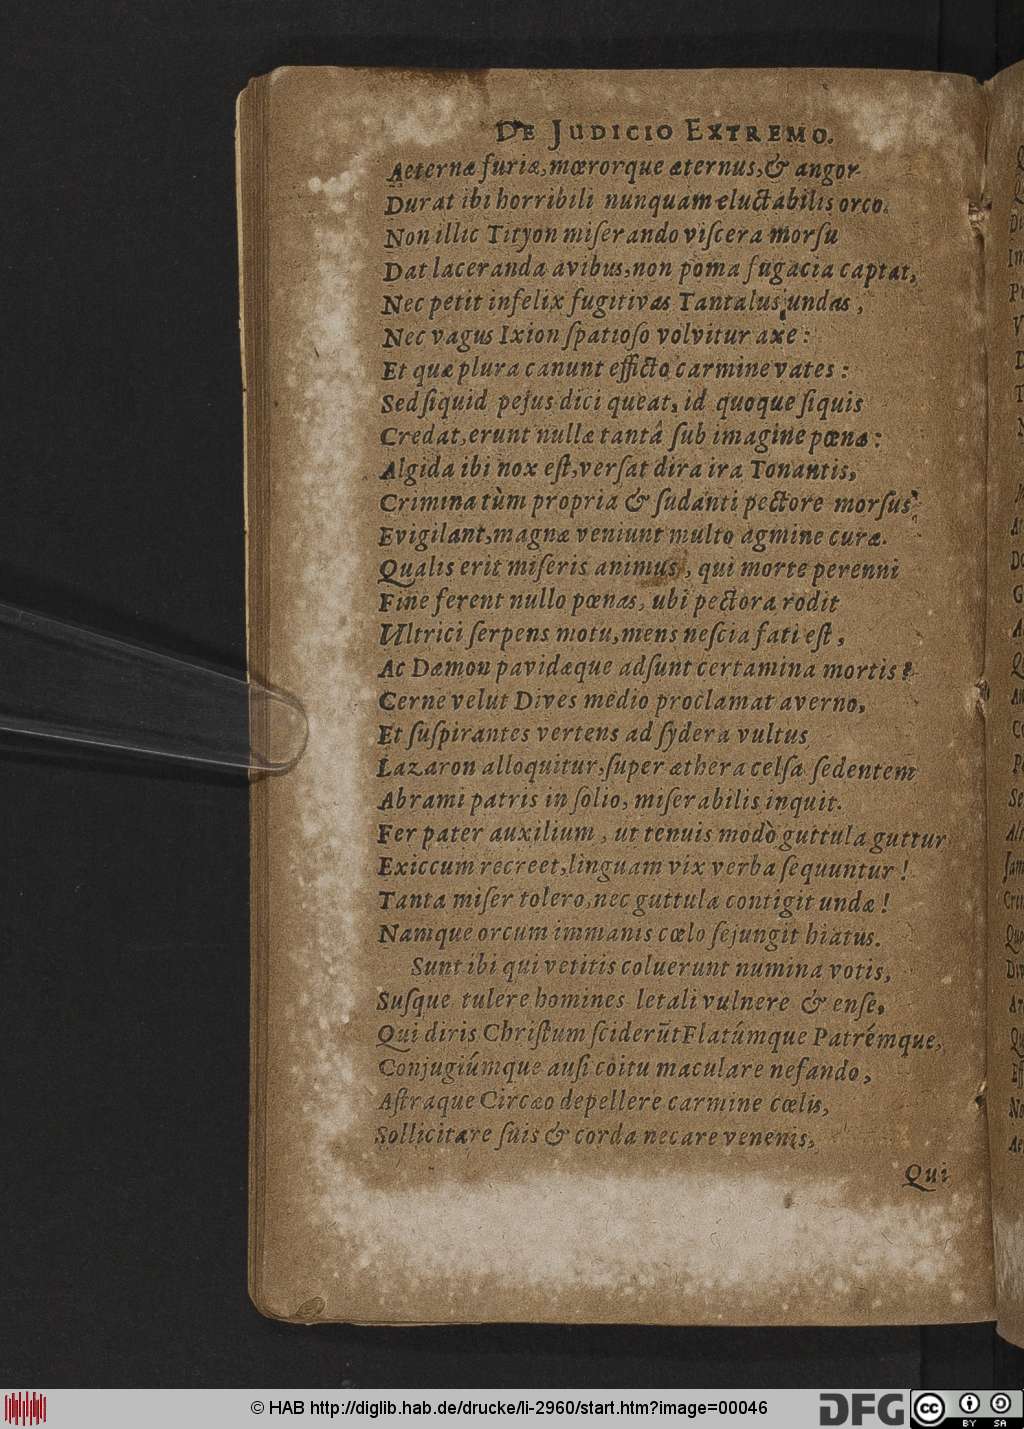 DE JUDICIO EXTREMO.
Aeternæ furiæ, mœrorque æternus, & angor
Durat ibi horribili nunquam eluctabilis orco.
Non illic Tityon miſerando viſcera morſu
Dat laceranda avibus, non poma fugacia captat,
Nec petit infelix fugitivas Tantalus undas,
Nec vagus Ixion ſpatioſo volvitur axe:
Et quæ plura canunt efficto carmine vates:
Sed ſiquid pejus dici queat, id quoque ſiquis
Credat, erunt nullæ tantâ ſub imagine pœnæ:
Algida ibi nox eſt, verſat dira ira Tonantis,
Crimina tùm propria & ſudanti pectore morſus
Evigilant, magnæ veniunt multo agmine curæ.
Qualis erit miſeris animus, qui morte perenni
Fine ferent nullo pœnas, ubi pectora rodit
Ultrici ſerpens motu, mens neſcia fati eſt,
Ac Dæmon pavidæque adſunt certamina mortis?
Cerne velut Dives medio proclamat averno,
Et ſuſpirantes vertens ad ſydera vultus
Lazaron alloquitur, ſuper æthera celſa ſedentem
Abrami patris in ſolio, miſerabilis inquit.
Fer pater auxilium, ut tenuis modò guttula guttur
Exiccum recreet, linguam vix verba ſequuntur!
Tanta miſer tolero, nec guttula contigit undæ!
Namque orcum immanis cœlo ſejungit hiatus.
Sunt ibi qui vetitis coluerunt numina votis,
Suſque tulere homines letali vulnere & enſe,
Qui diris Chriſtum ſciderūt Flatúmque Patrémque,
Conjugiúmque auſi coitu maculare nefando,
Aſtraque Circæo depellere carmine cœlis,
Sollicitare ſuis & corda necare venenis,
Qui
© HAB http://diglib.hab.de/drucke/li-2960/start.htm?image=00046
DFG
cc
BY SA